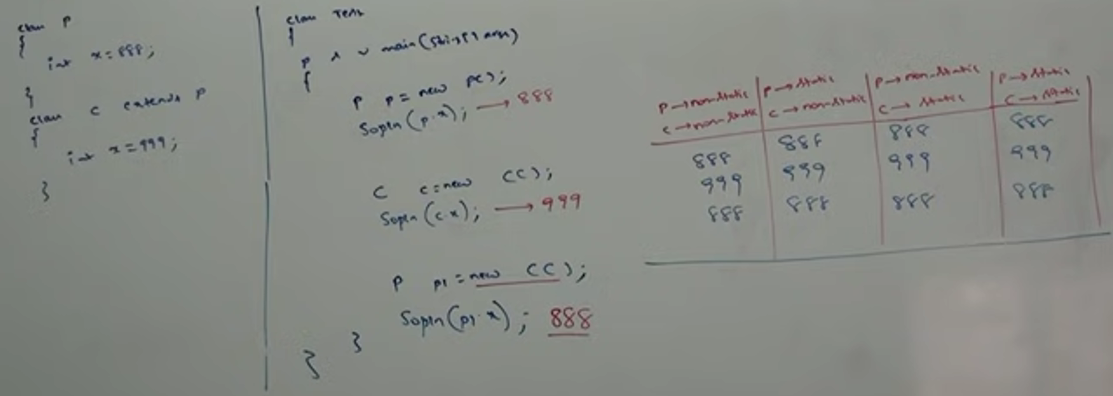 class P
{
int x=888;
}
class C extends P
{
int x=999;
}
class Test
{
P s v main(String[] args)
{
P p=new P();
Sopln(p.x); → 888
C c=new C();
Sopln(c.x); → 999
P p1=new C();
Sopln(p1.x); 888
}
}
P→non-static P→static P→non-static P→static
C→non-static C→non-static C→static C→static
888 888 888 888
999 999 999 999
888 888 888 888